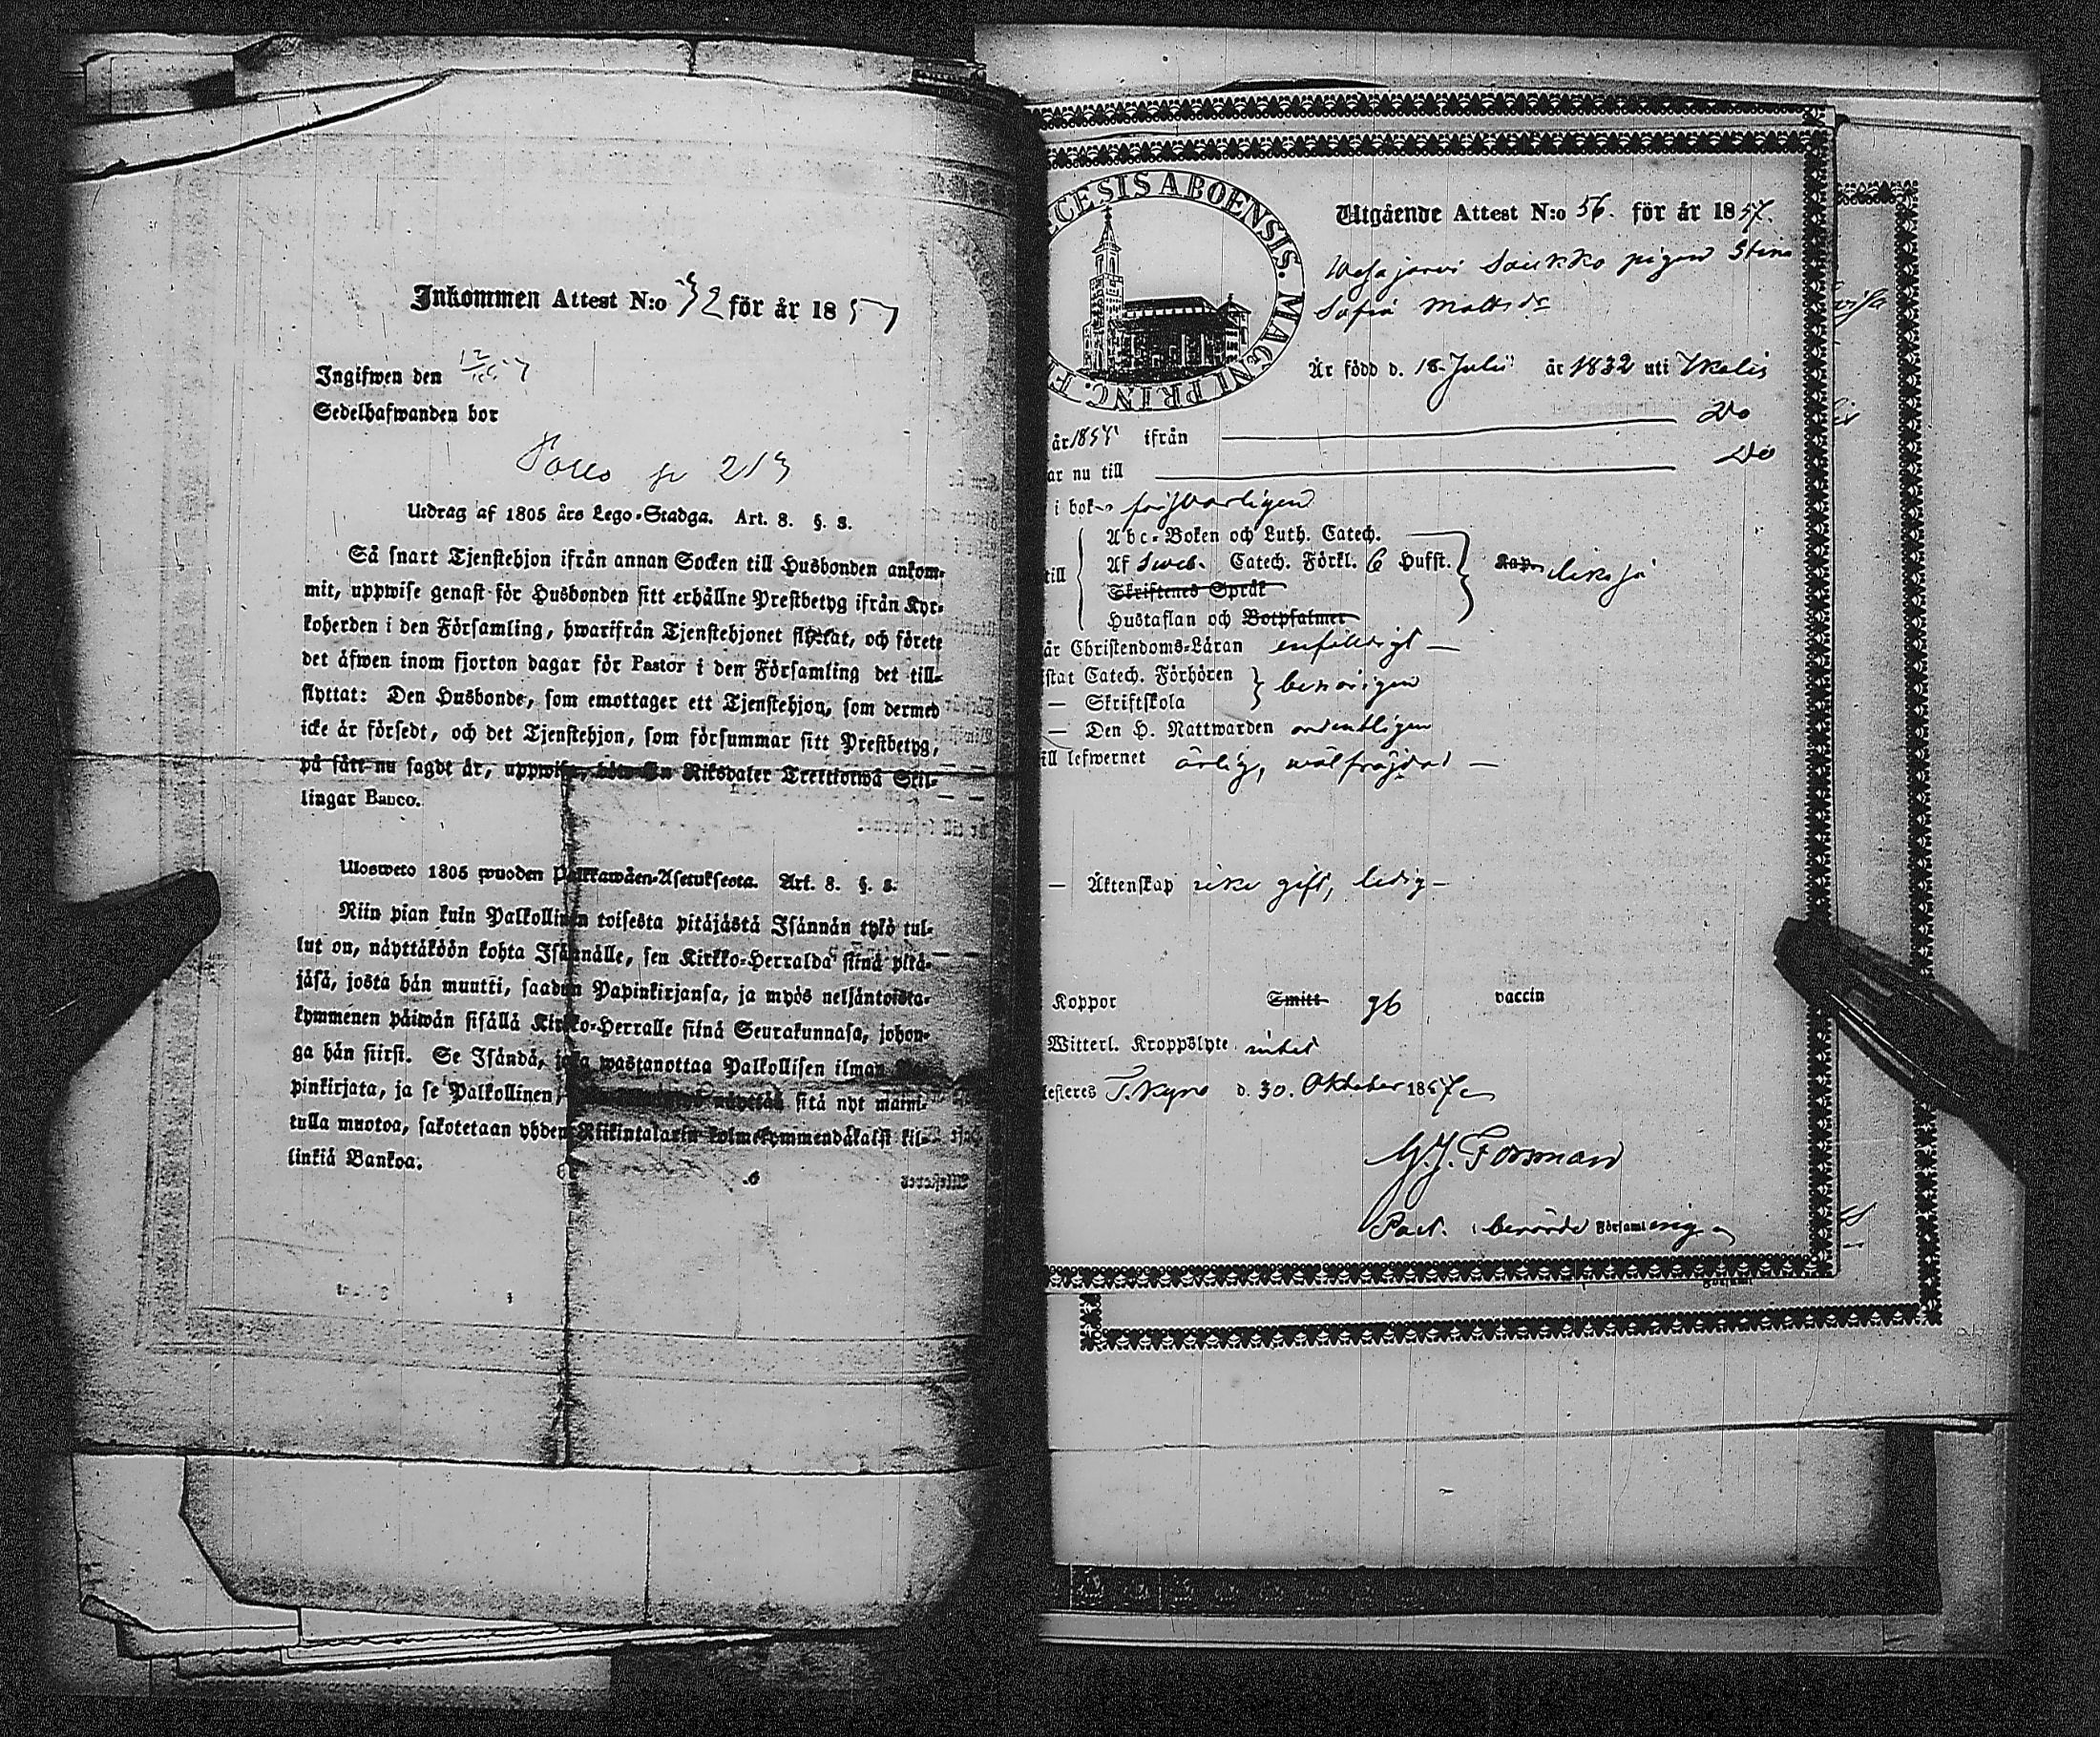 Inkommen Attest N:o 32 för år 1857
Ingifwen den
Sedelhafwanden bor
213
Utdrag af 1805 års Lego-Stadga. Art. 8. §. 8.
Så snart Tjenstehjon ifrån annan Socken till Husbonden ankom-
mit, uppwise genast för Husbonden sitt erhållne Prestbetyg ifrån Kyr-
koherden i den Församling, hwarifrån Tjenstehjonet flyttat, och förete
det äfwen inom fjorton dagar för Pastor i den Församling det till-
flyttat: Den Husbonde, som emottager ett Tjenstehjon, som dermed
icke är försedt, och det Tjenstehjon, som försummar sitt Prestbetyg,
på sätt nu sagdt är, uppwisa, böte En Riksdaler Trettiotwå Skil-
lingar Banco.
Ulosweto 1805 wuoden Palkkawäen-Asetuksesta. Art. 8. §. 8.
Niin pian kuin Palkollinen toisesta pitäjästä Isännän tykö tul-
lut on, näyttäköön kohta Isännälle, sen Kirkko-Herralda siinä pitä-
jäsä, josta hän muutti, saadun Papinkirjansa, ja myös neljäntoista-
kymmenen päiwän sisällä Kirkko-Herralle siinä Seurakunnasa, johon-
ga hän siirsi. Se Isändä, joka wastanottaa Palkollisen ilman
pinkirjata, ja se Palkollinen, näyttää sitä nyt maini-
tulla muotoa, sakotetaan yhden Riikintalarin kolmekymmendäkaksi kil-
linkiä Bankoa.
ECESIS ABOENSIS. MAGNI PRINC. F
Utgående Attest N:o 56. för år 1857.
Wesajärvi Saukko pigan Stina
Sofia Mattsdr
Är född d. 18 Julii år 1832 uti Ikalis
år 1857 ifrån Do
ar nu till Do
i bok-n försvarligen
till
Abc-Boken och Luth. Catech.
Af Sveb. Catech. Förkl. 6 Hufst.
likaså
Skriftenes Språk
Hustaflan och Botpsalmer
är Christendoms-Läran enfaldigt —
istat Catech. Förhören
behörigen
— Skriftskola
— Den H. Nattwarden ordentligen
ill lefwernet ärlig, wälfräjdad —
— Äktenskap icke gift, ledig —
Koppor Smitt gb vaccin
Witterl. Kroppslyte intet
testeres T. Kyro d. 30. Oktober 1857
G. J. Forsman
Past. i berörde Församling